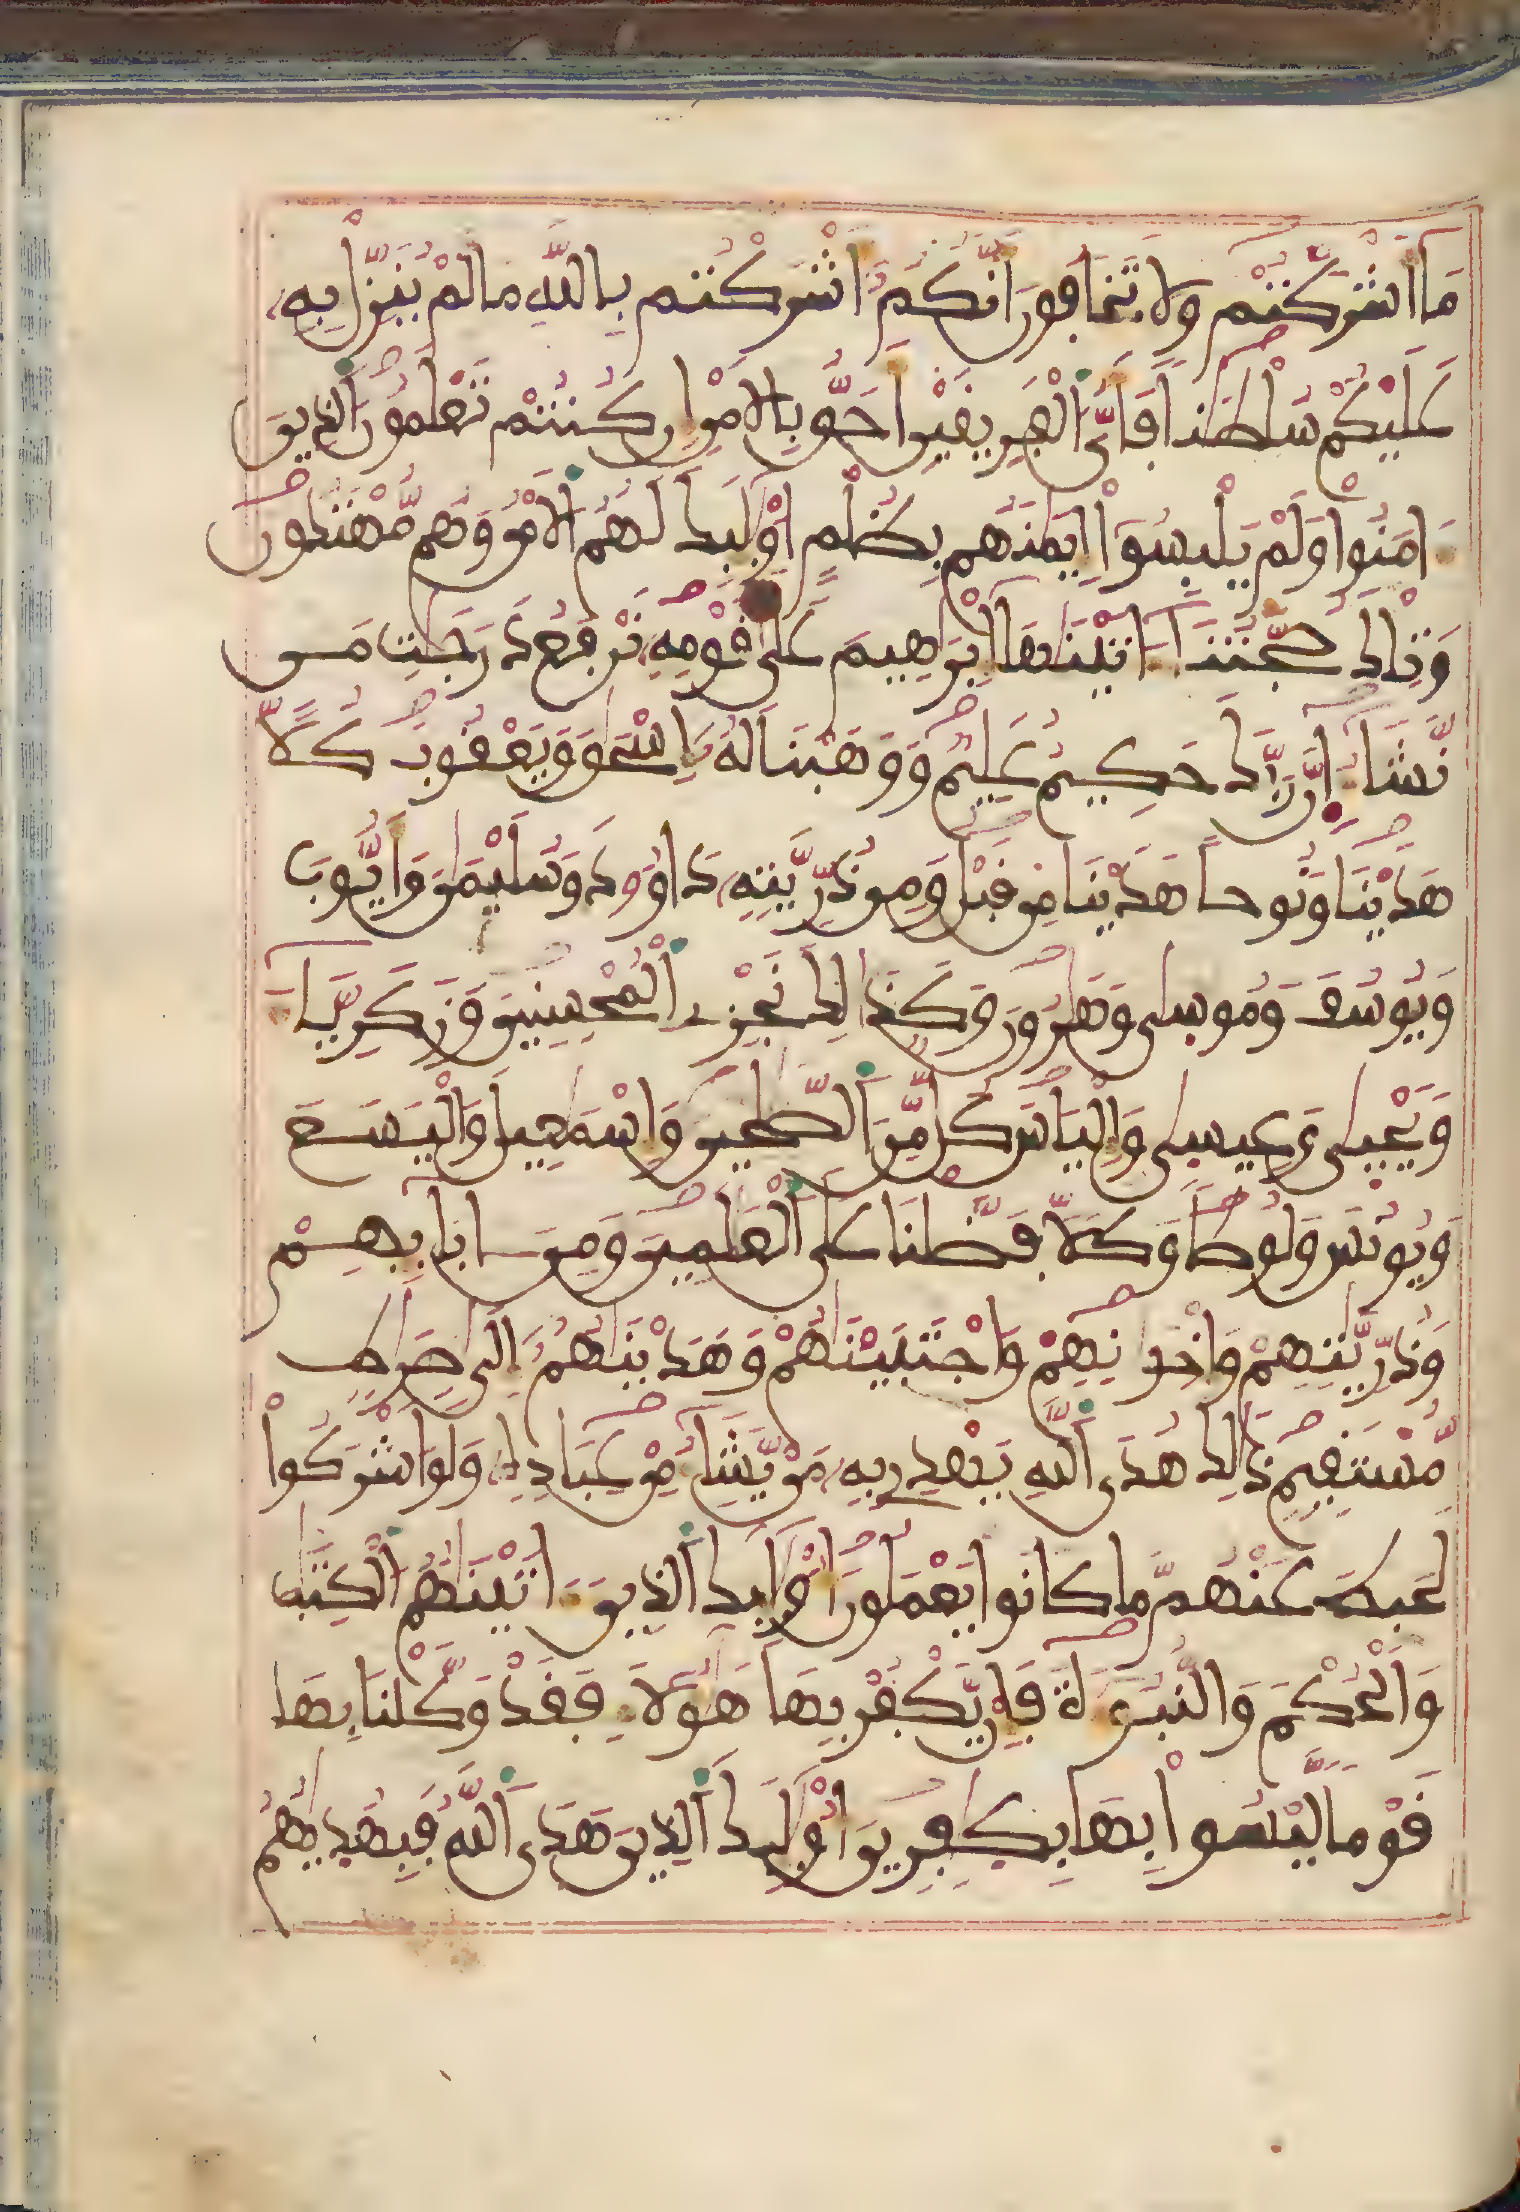 مَا أَشْرَكْتُمْ وَلَا تَخَافُونَ أَنَّكُمُ أَشْرَكْتُم بِاللَّهِ مَا لَمْ يُنَزِّلْ بِهِ
عَلَيْكُمْ سُلْطَٰنًا فَأَيُّ الْفَرِيقَيْنِ أَحَقُّ بِالْأَمْنِ إِن كُنتُمْ تَعْلَمُونَ الَّذِينَ
ءَامَنُوا وَلَمْ يَلْبِسُوا إِيمَٰنَهُم بِظُلْمٍ أُوْلَٰئِكَ لَهُمُ الْأَمْنُ وَهُم مُّهْتَدُونَ
وَتِلْكَ حُجَّتُنَا ءَاتَيْنَٰهَا إِبْرَٰهِيمَ عَلَىٰ قَوْمِهِ نَرْفَعُ دَرَجَٰتِ مَن
نَّشَاءُ إِنَّ رَبَّكَ حَكِيمٌ عَلِيمٌ وَوَهَبْنَا لَهُ إِسْحَٰقَ وَيَعْقُوبَ كُلًّا
هَدَيْنَا وَنُوحًا هَدَيْنَا مِن قَبْلُ وَمِن ذُرِّيَّتِهِ دَاوُودَ وَسُلَيْمَٰنَ وَأَيُّوبَ
وَيُوسُفَ وَمُوسَىٰ وَهَٰرُونَ وَكَذَٰلِكَ نَجْزِي الْمُحْسِنِينَ وَزَكَرِيَّاءَ
وَيَحْيَىٰ وَعِيسَىٰ وَإِلْيَاسَ كُلٌّ مِّنَ الصَّٰلِحِينَ وَإِسْمَٰعِيلَ وَالْيَسَعَ
وَيُونُسَ وَلُوطًا وَكُلًّا فَضَّلْنَا عَلَى الْعَٰلَمِينَ وَمِنْ ءَابَائِهِمْ
وَذُرِّيَّٰتِهِمْ وَإِخْوَٰنِهِمْ وَاجْتَبَيْنَٰهُمْ وَهَدَيْنَٰهُمُ إِلَىٰ صِرَٰطٍ
مُّسْتَقِيمٍ ذَٰلِكَ هُدَى اللَّهِ يَهْدِي بِهِ مَنْ يَّشَاءُ مِنْ عِبَادِهِ وَلَوْ أَشْرَكُوا
لَحَبِطَ عَنْهُم مَّا كَانُوا يَعْمَلُونَ أُوْلَٰئِكَ الَّذِينَ ءَاتَيْنَٰهُمُ الْكِتَٰبَ
وَالْحُكْمَ وَالنُّبُوءَةَ فَإِنْ يَّكْفُرْ بِهَا هَٰؤُلَاءِ فَقَدْ وَكَّلْنَا بِهَا
قَوْمًا لَّيْسُوا بِهَا بِكَٰفِرِينَ أُوْلَٰئِكَ الَّذِينَ هَدَى اللَّهُ فَبِهُدَىٰهُمُ